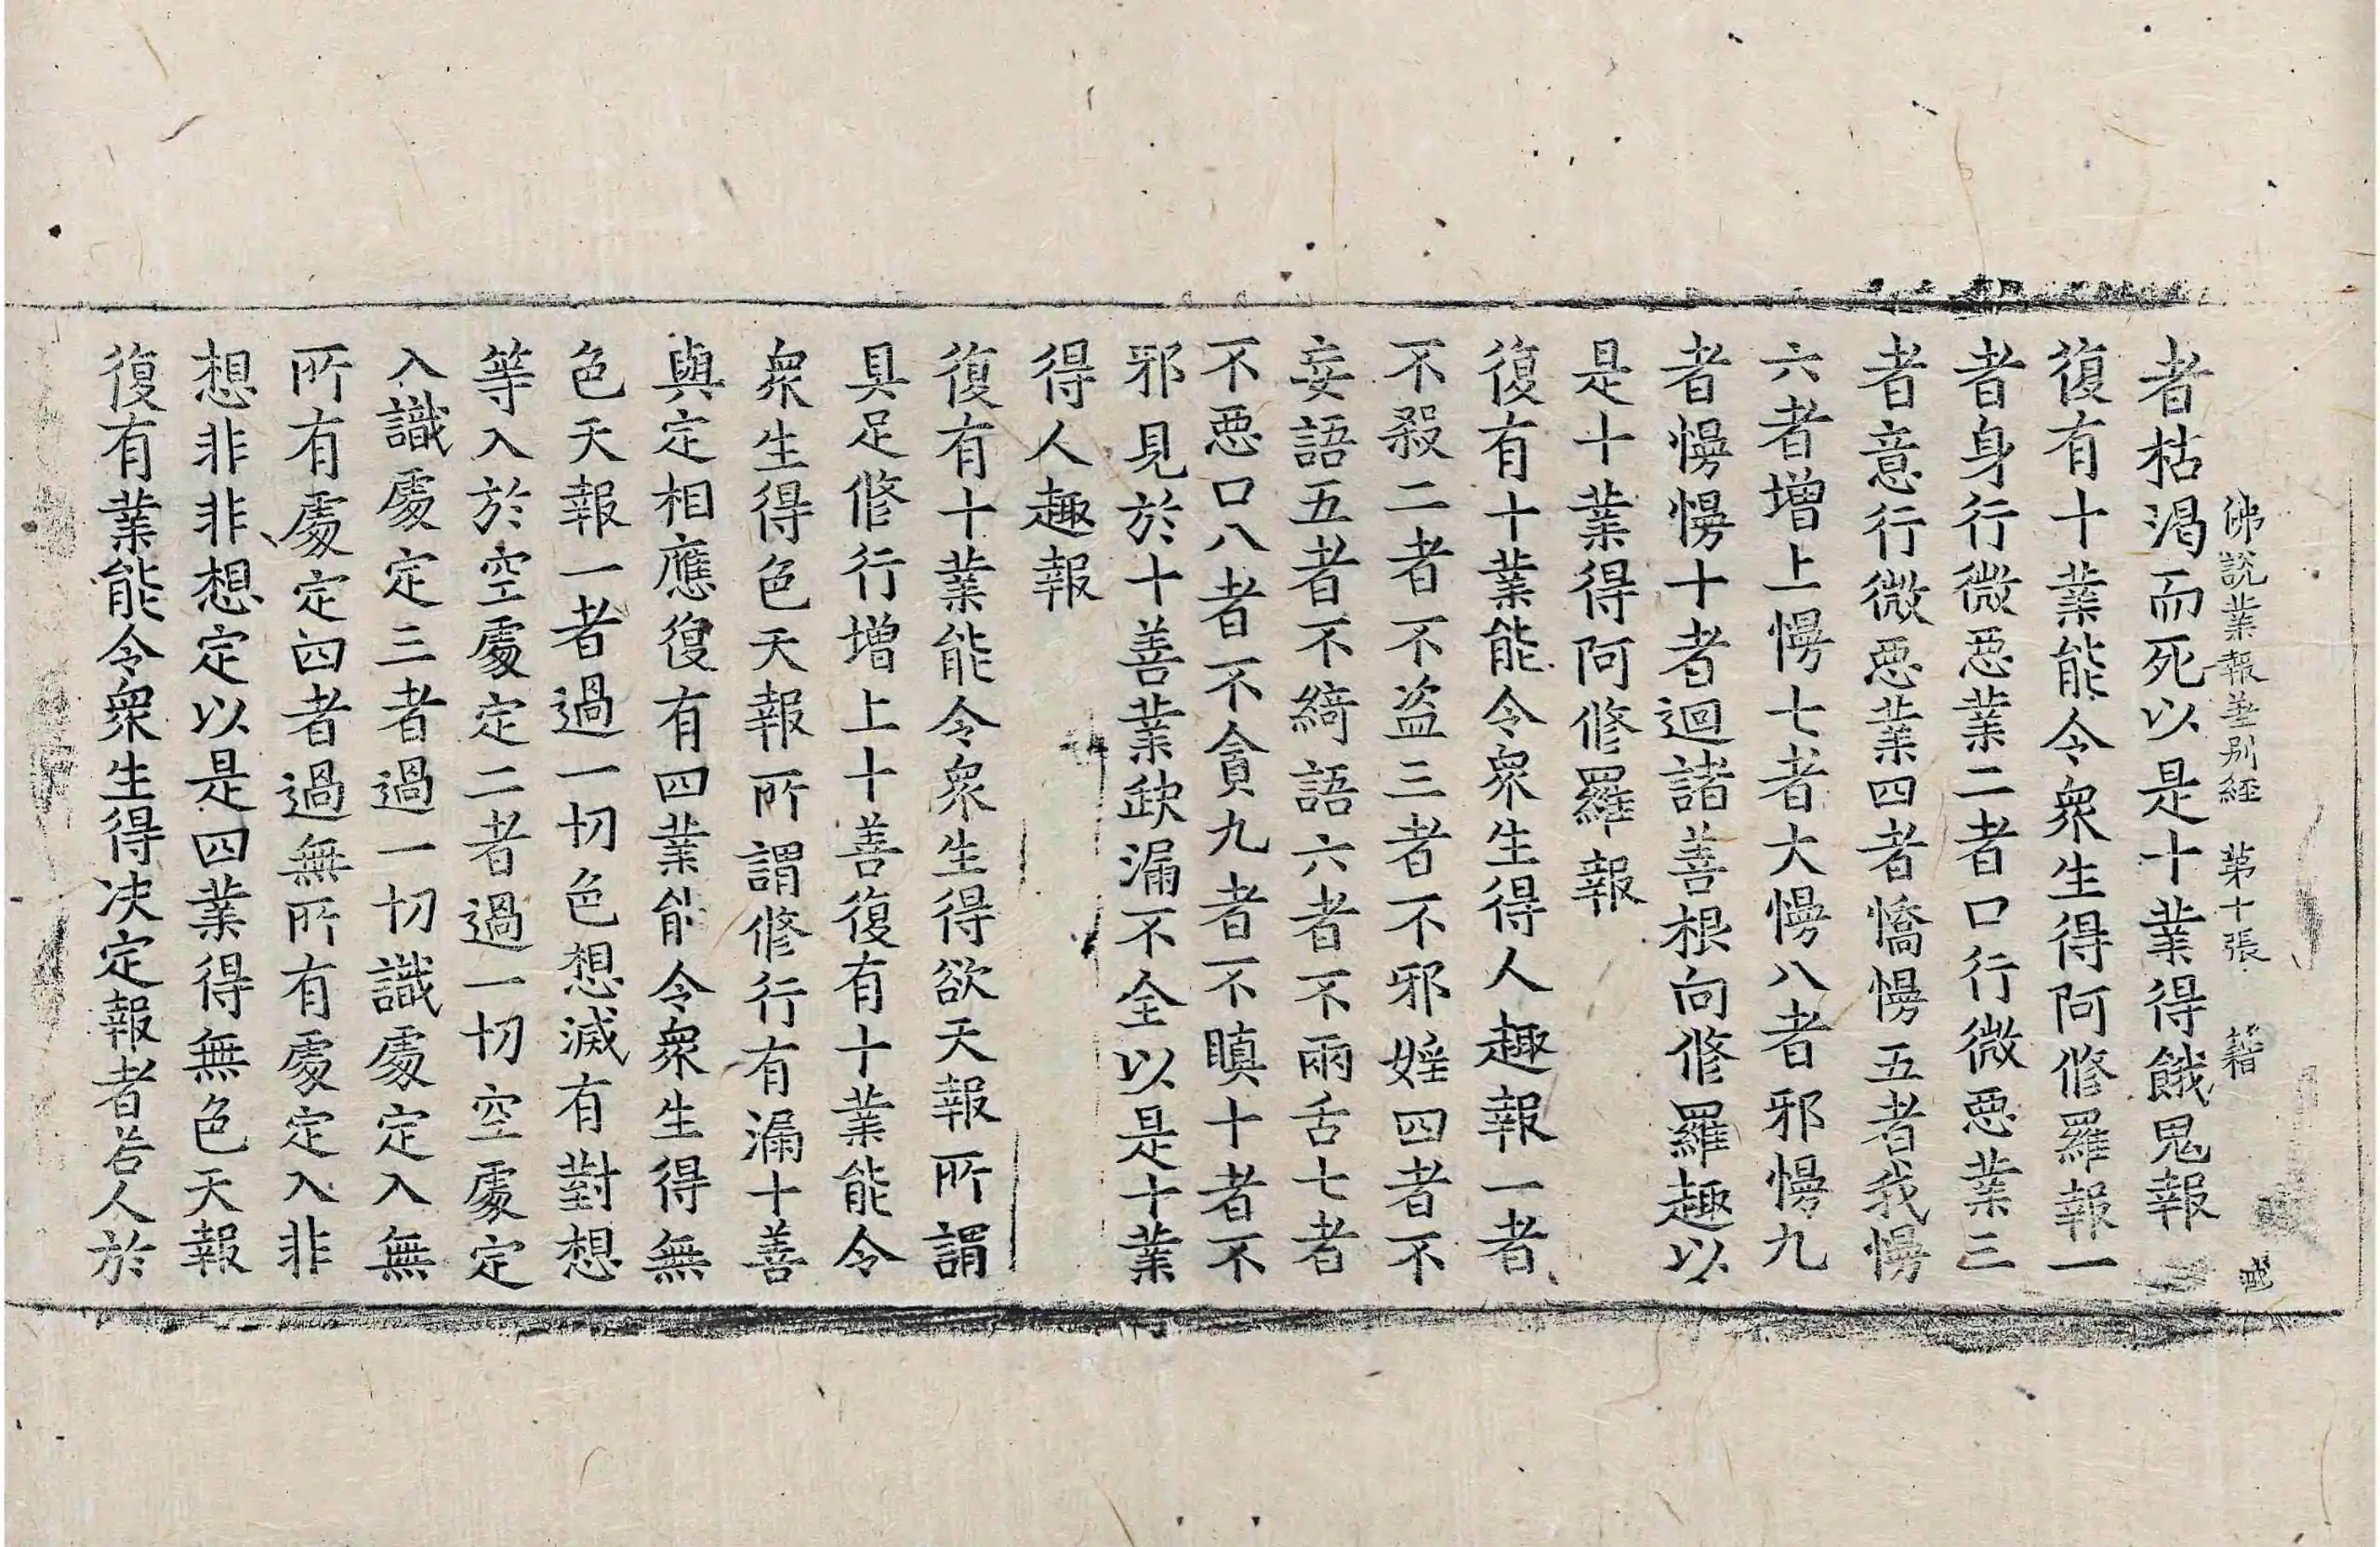 佛說業報差別經 第十張 籍
者枯渴而死以是十業得餓鬼報
復有十業能令衆生得阿修羅報一
者身行微惡業二者口行微惡業三
者意行微惡業四者憍慢五者我慢
六者增上慢七者大慢八者邪慢九
者慢慢十者迴諸善根向修羅趣以
是十業得阿修羅報
復有十業能令衆生得人趣報一者
不殺二者不盜三者不邪婬四者不
妄語五者不綺語六者不兩舌七者
不惡口八者不貪九者不瞋十者不
邪見於十善業缺漏不全以是十業
得人趣報
復有十業能令衆生得欲天報所謂
具足修行增上十善復有十業能令
衆生得色天報所謂修行有漏十善
與定相應復有四業能令衆生得無
色天報一者過一切色想滅有對想
等入於空處定二者過一切空處定
入識處定三者過一切識處定入無
所有處定四者過無所有處定入非
想非非想定以是四業得無色天報
復有業能令衆生得决定報者若人於